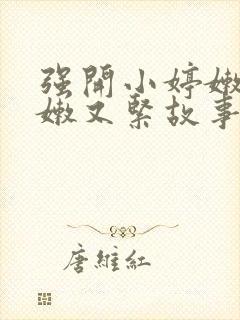 强開小婷嫩
嫩又緊故事
唐維紅